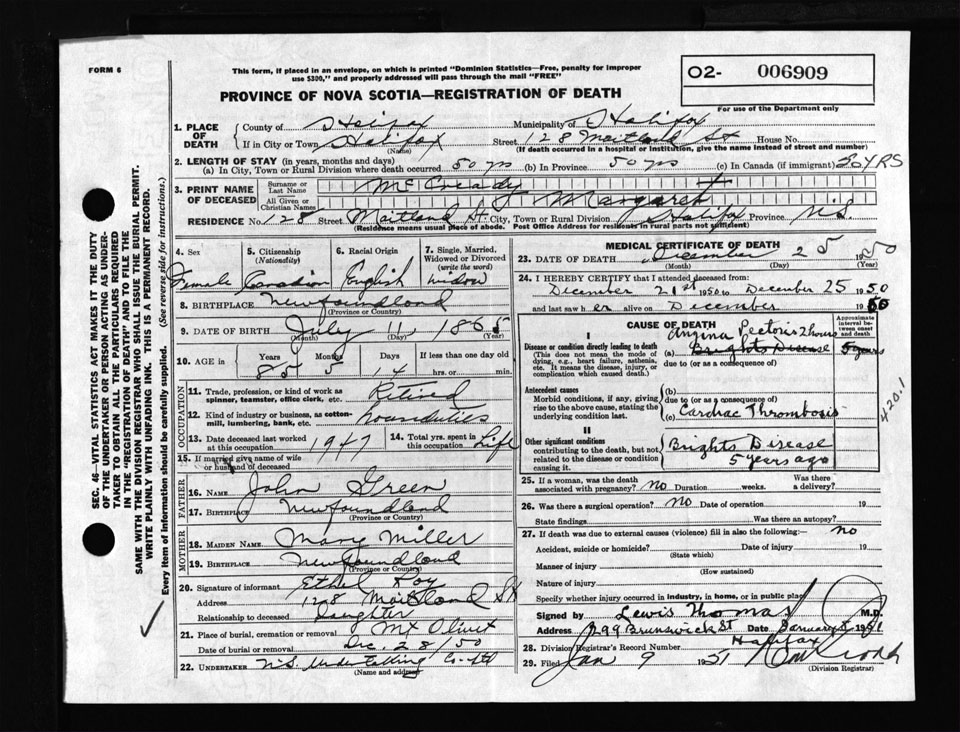 FORM 6
This form, if placed in an envelope, on which is printed "Dominion Statistics—Free, penalty for improper
use $300," and properly addressed will pass through the mail "FREE"
O2- 006909
For use of the Department only
PROVINCE OF NOVA SCOTIA—REGISTRATION OF DEATH
SEC. 46—VITAL STATISTICS ACT MAKES IT THE DUTY
OF THE UNDERTAKER OR PERSON ACTING AS UNDER-
TAKER TO OBTAIN ALL THE PARTICULARS REQUIRED
IN THE "REGISTRATION OF DEATH" AND TO FILE THE
SAME WITH THE DIVISION REGISTRAR WHO SHALL ISSUE THE BURIAL PERMIT.
WRITE PLAINLY WITH UNFADING INK. THIS IS A PERMANENT RECORD.
Every item of information should be carefully supplied. (See reverse side for instructions).
1. PLACE OF DEATH
County of Halifax Municipality of Halifax
If in City or Town Halifax Street 128 Maitland St House No.
(Name) (If death occurred in a hospital or institution, give the name instead of street and number)
2. LENGTH OF STAY (in years, months and days)
(a) In City, Town or Rural Division where death occurred 50 yrs (b) In Province 50 yrs (c) In Canada (if immigrant) YRS
3. PRINT NAME OF DECEASED
Surname or Last Name McCready
All Given or Christian Names Margaret
RESIDENCE No. 128 Street Maitland St. City, Town or Rural Division Halifax Province N.S
(Residence means usual place of abode. Post Office Address for residents in rural parts not sufficient)
4. Sex
Female
5. Citizenship
(Nationality)
Canadian
6. Racial Origin
English
7. Single, Married,
Widowed or Divorced
(write the word)
Widow
8. BIRTHPLACE Newfoundland
(Province or Country)
9. DATE OF BIRTH July 11 1865
(Month) (Day) (Year)
10. AGE in
Years Months Days If less than one day old
85 5 14 hrs. or min.
OCCUPATION
11. Trade, profession, or kind of work as
spinner, teamster, office clerk, etc. Retired
12. Kind of industry or business, as cotton-
mill, lumbering, bank, etc. house duties
13. Date deceased last worked
at this occupation 1947
14. Total yrs. spent in
this occupation Life
15. If married give name of wife
or husband of deceased
FATHER
16. NAME John Green
17. BIRTHPLACE Newfoundland
(Province or Country)
MOTHER
18. MAIDEN NAME Mary Miller
19. BIRTHPLACE Newfoundland
(Province or Country)
20. Signature of informant Ethel Roy
Address 128 Maitland St
Relationship to deceased Daughter
21. Place of burial, cremation or removal Mt Olivet
Date of burial or removal Dec. 28/50
22. UNDERTAKER N.S. Undertaking Co. Ltd
(Name and address)
MEDICAL CERTIFICATE OF DEATH
23. DATE OF DEATH December 25 1950
(Month) (Day) (Year)
24. I HEREBY CERTIFY that I attended deceased from:
December 21st 1950 to December 25 1950
and last saw her alive on December 1950
CAUSE OF DEATH
Approximate
interval be-
tween onset
and death
I
Disease or condition directly leading to death
(This does not mean the mode of
dying, e.g., heart failure, asthenia,
etc. It means the disease, injury, or
complication which caused death.)
Angina Pectoris 2 hours
(a) Brights Disease 5 years
due to (or as a consequence of)
Antecedent causes
Morbid conditions, if any, giving
rise to the above cause, stating the
underlying condition last.
(b)
due to (or as a consequence of)
(c) Cardiac Thrombosis
420.1
II
Other significant conditions
contributing to the death, but not
related to the disease or condition
causing it.
Brights Disease
5 years ago
25. If a woman, was the death
associated with pregnancy? No Duration weeks. Was there
a delivery?
26. Was there a surgical operation? No Date of operation 19
State findings Was there an autopsy?
27. If death was due to external causes (violence) fill in also the following:— No
Accident, suicide or homicide? Date of injury 19
(State which)
Manner of injury
(How sustained)
Nature of injury
Specify whether injury occurred in industry, in home, or in public place
Signed by Lewis Thomas M.D.
Address 299 Brunswick St Date January 1951
Halifax
28. Division Registrar's Record Number
29. Filed Jan 9 1951
(Division Registrar)